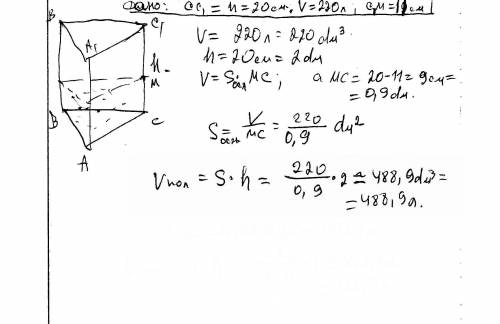 Дано: CC₁ = h = 20 см. V = 220 л; C₁M = 11 см
B
C₁
A₁
h
M
B
C
A
V = 220 л = 220 дм³
h = 20 см = 2 дм
V = Sосн MC; а MC = 20-11 = 9 см =
= 0,9 дм.
Sосн = V/MC = 220/0,9 дм²
Vпол = S·h = 220/0,9 · 2 ≈ 488,9 дм³ =
= 488,9 л.